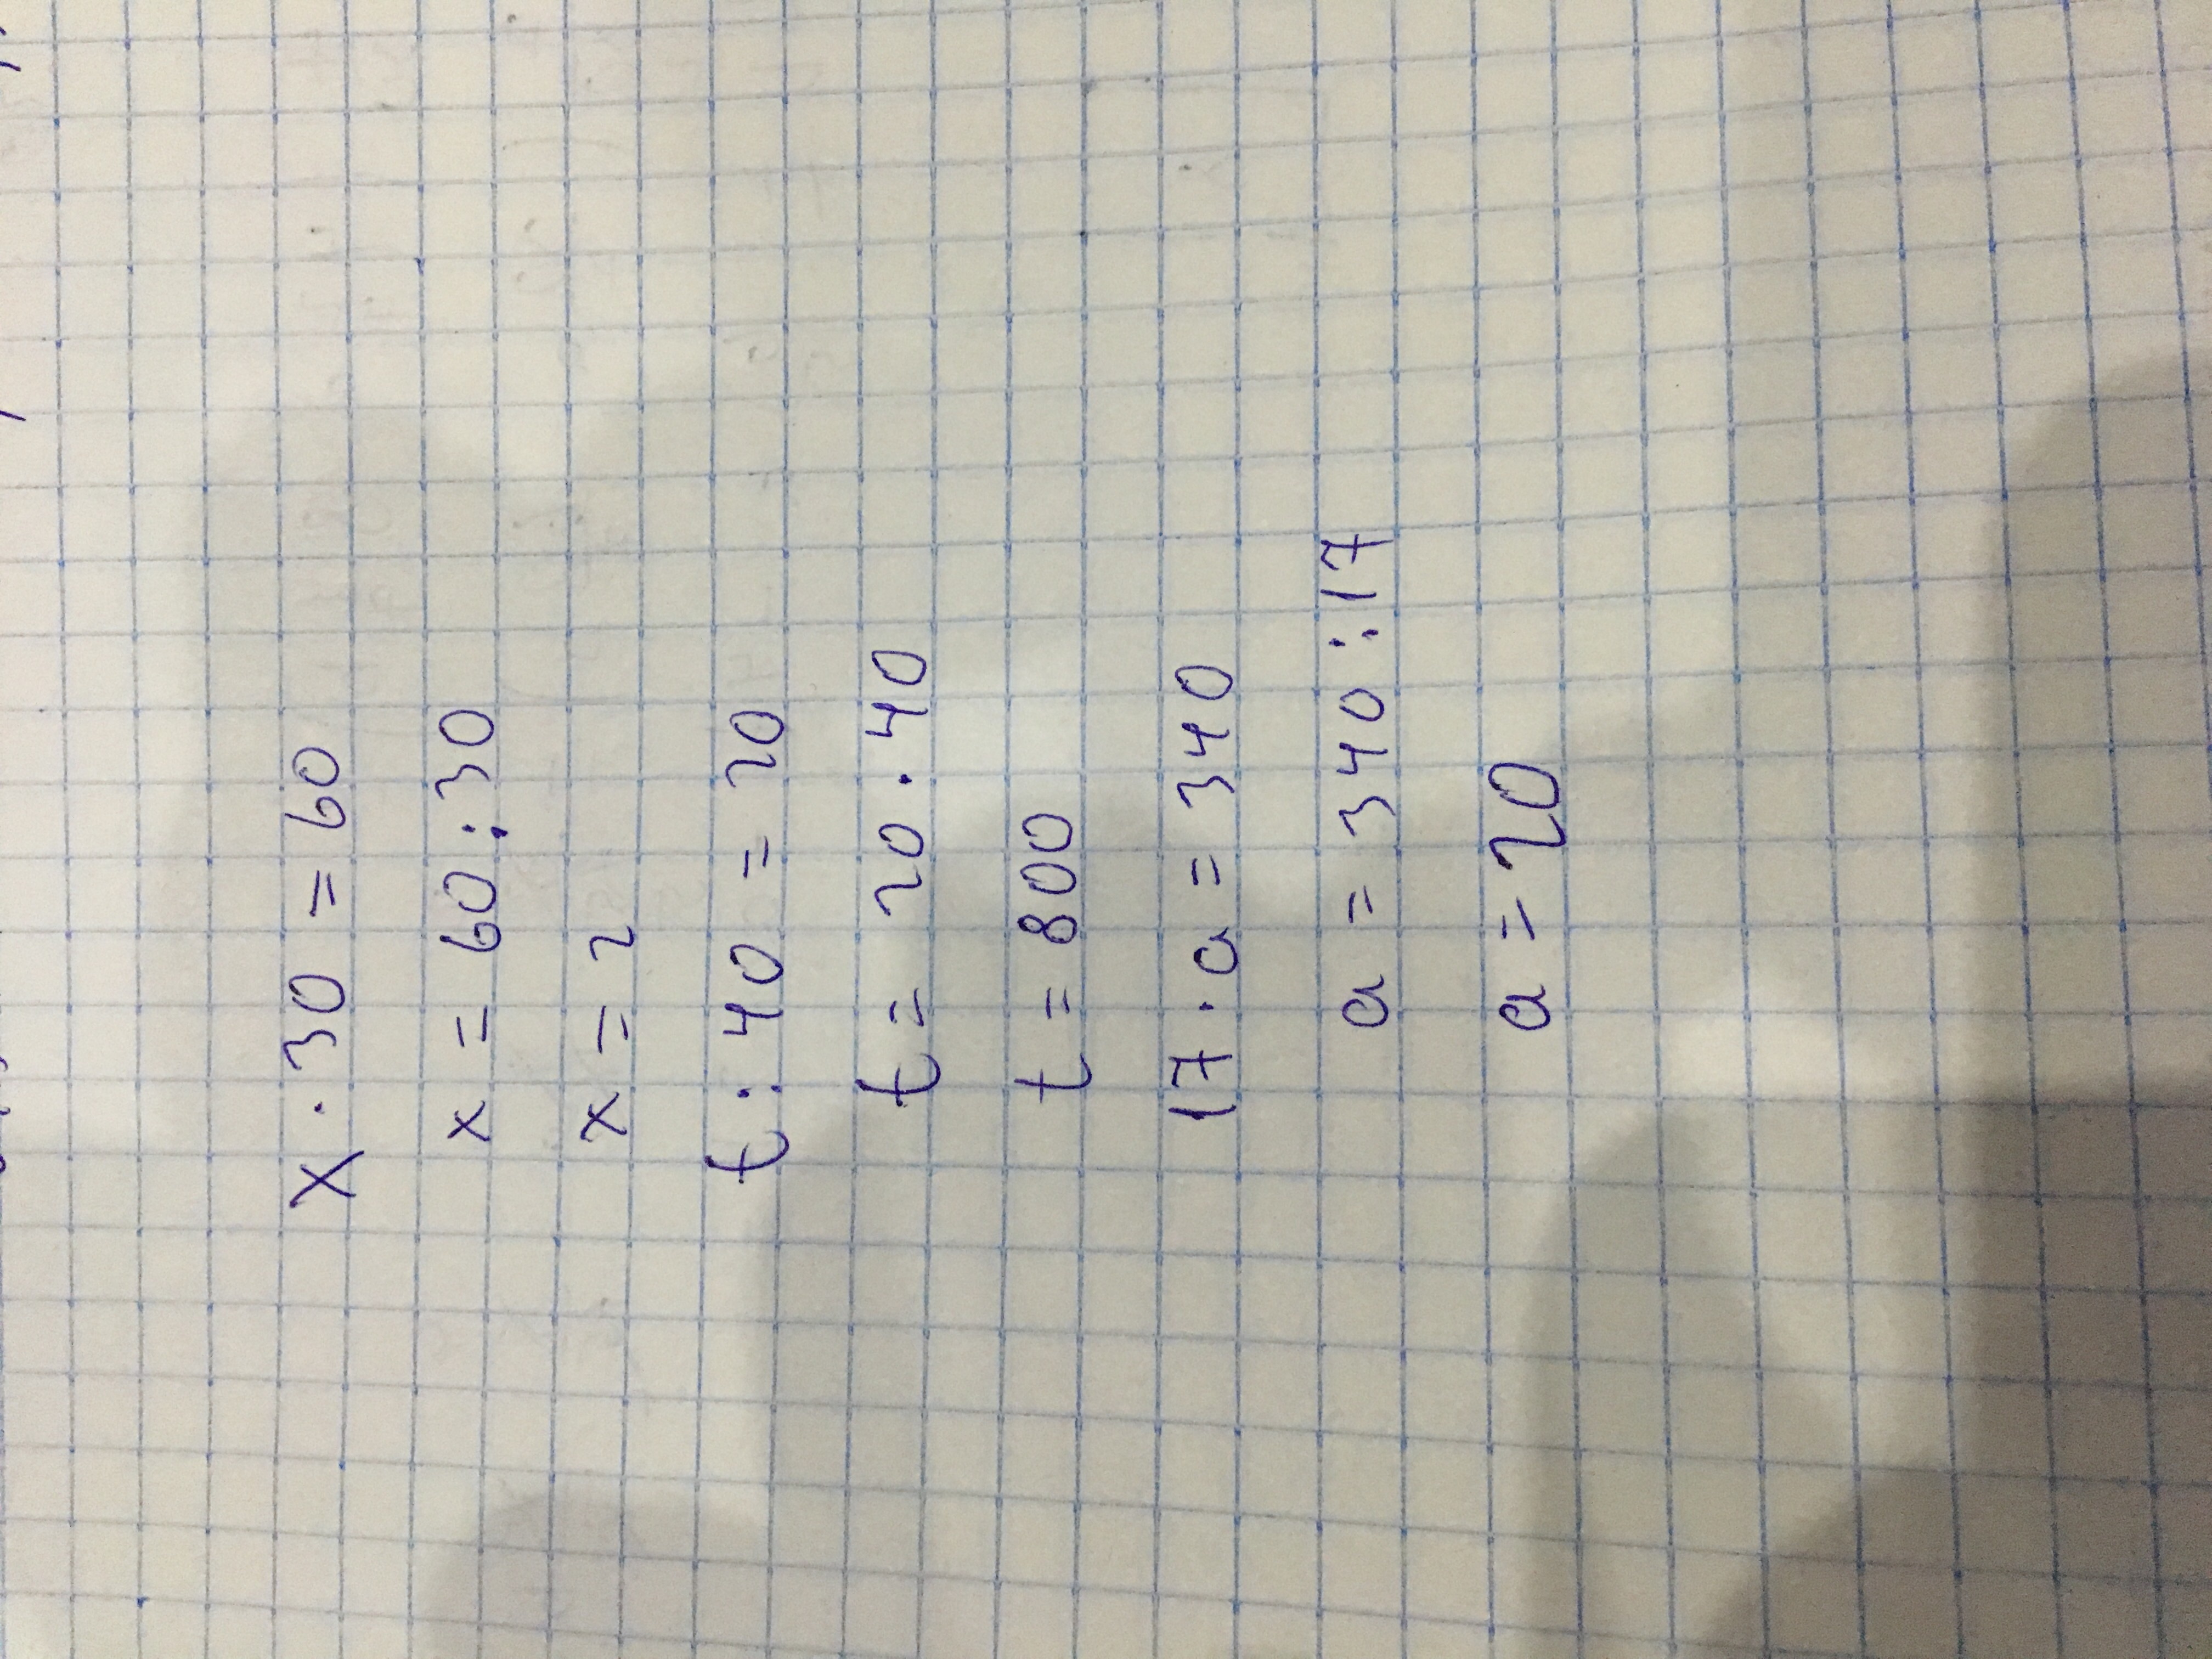 x · 30 = 60
x = 60 : 30
x = 2
t : 40 = 20
t = 20 · 40
t = 800
17 · a = 340
a = 340 : 17
a = 20